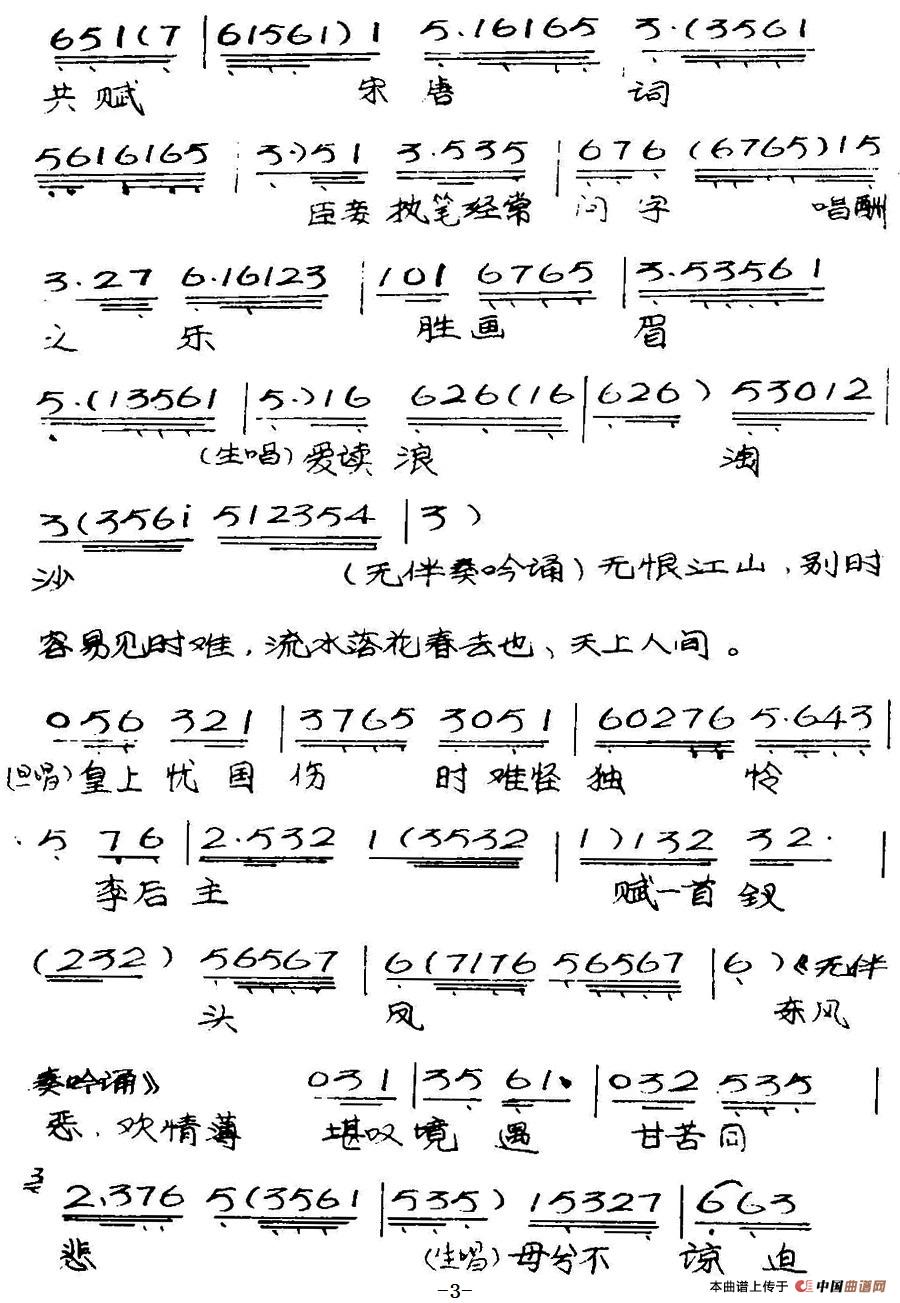 651(7 | 61561) 1 5.16165 3.(3561
共赋 宋唐 词
5616165 | 3.)51 3.535 | 676 (6765)15
臣妾执笔经常 问字 唱酬
3.27 6.16123 | 101 6765 | 3.53561
之 乐 胜画 眉
5.(13561 | 5.)16 626(16 | 626) 53012 |
(生唱)爱读 浪 淘
3(356i 512354 | 3)
沙 (无伴奏吟诵)无恨江山,别时
容易见时难,流水落花春去也、天上人间。
056 321 | 3765 3051 | 60276 5.643 |
(旦唱)皇上忧国伤 时难怪独 怜
5 76 | 2.532 1(3532 | 1)132 32. |
李后主 赋一首钗
(232) 56567 | 6(7176 56567 | 6)《无伴
头 凤 东风
奏吟诵》 031 | 35 61. | 032 535 |
恶、欢情薄 堪叹境遇 甘苦同
2.376 5(3561 | 535) 15327 | 663
悲 (生唱)母兮不 谅迫
-3-
本曲谱上传于 中国曲谱网